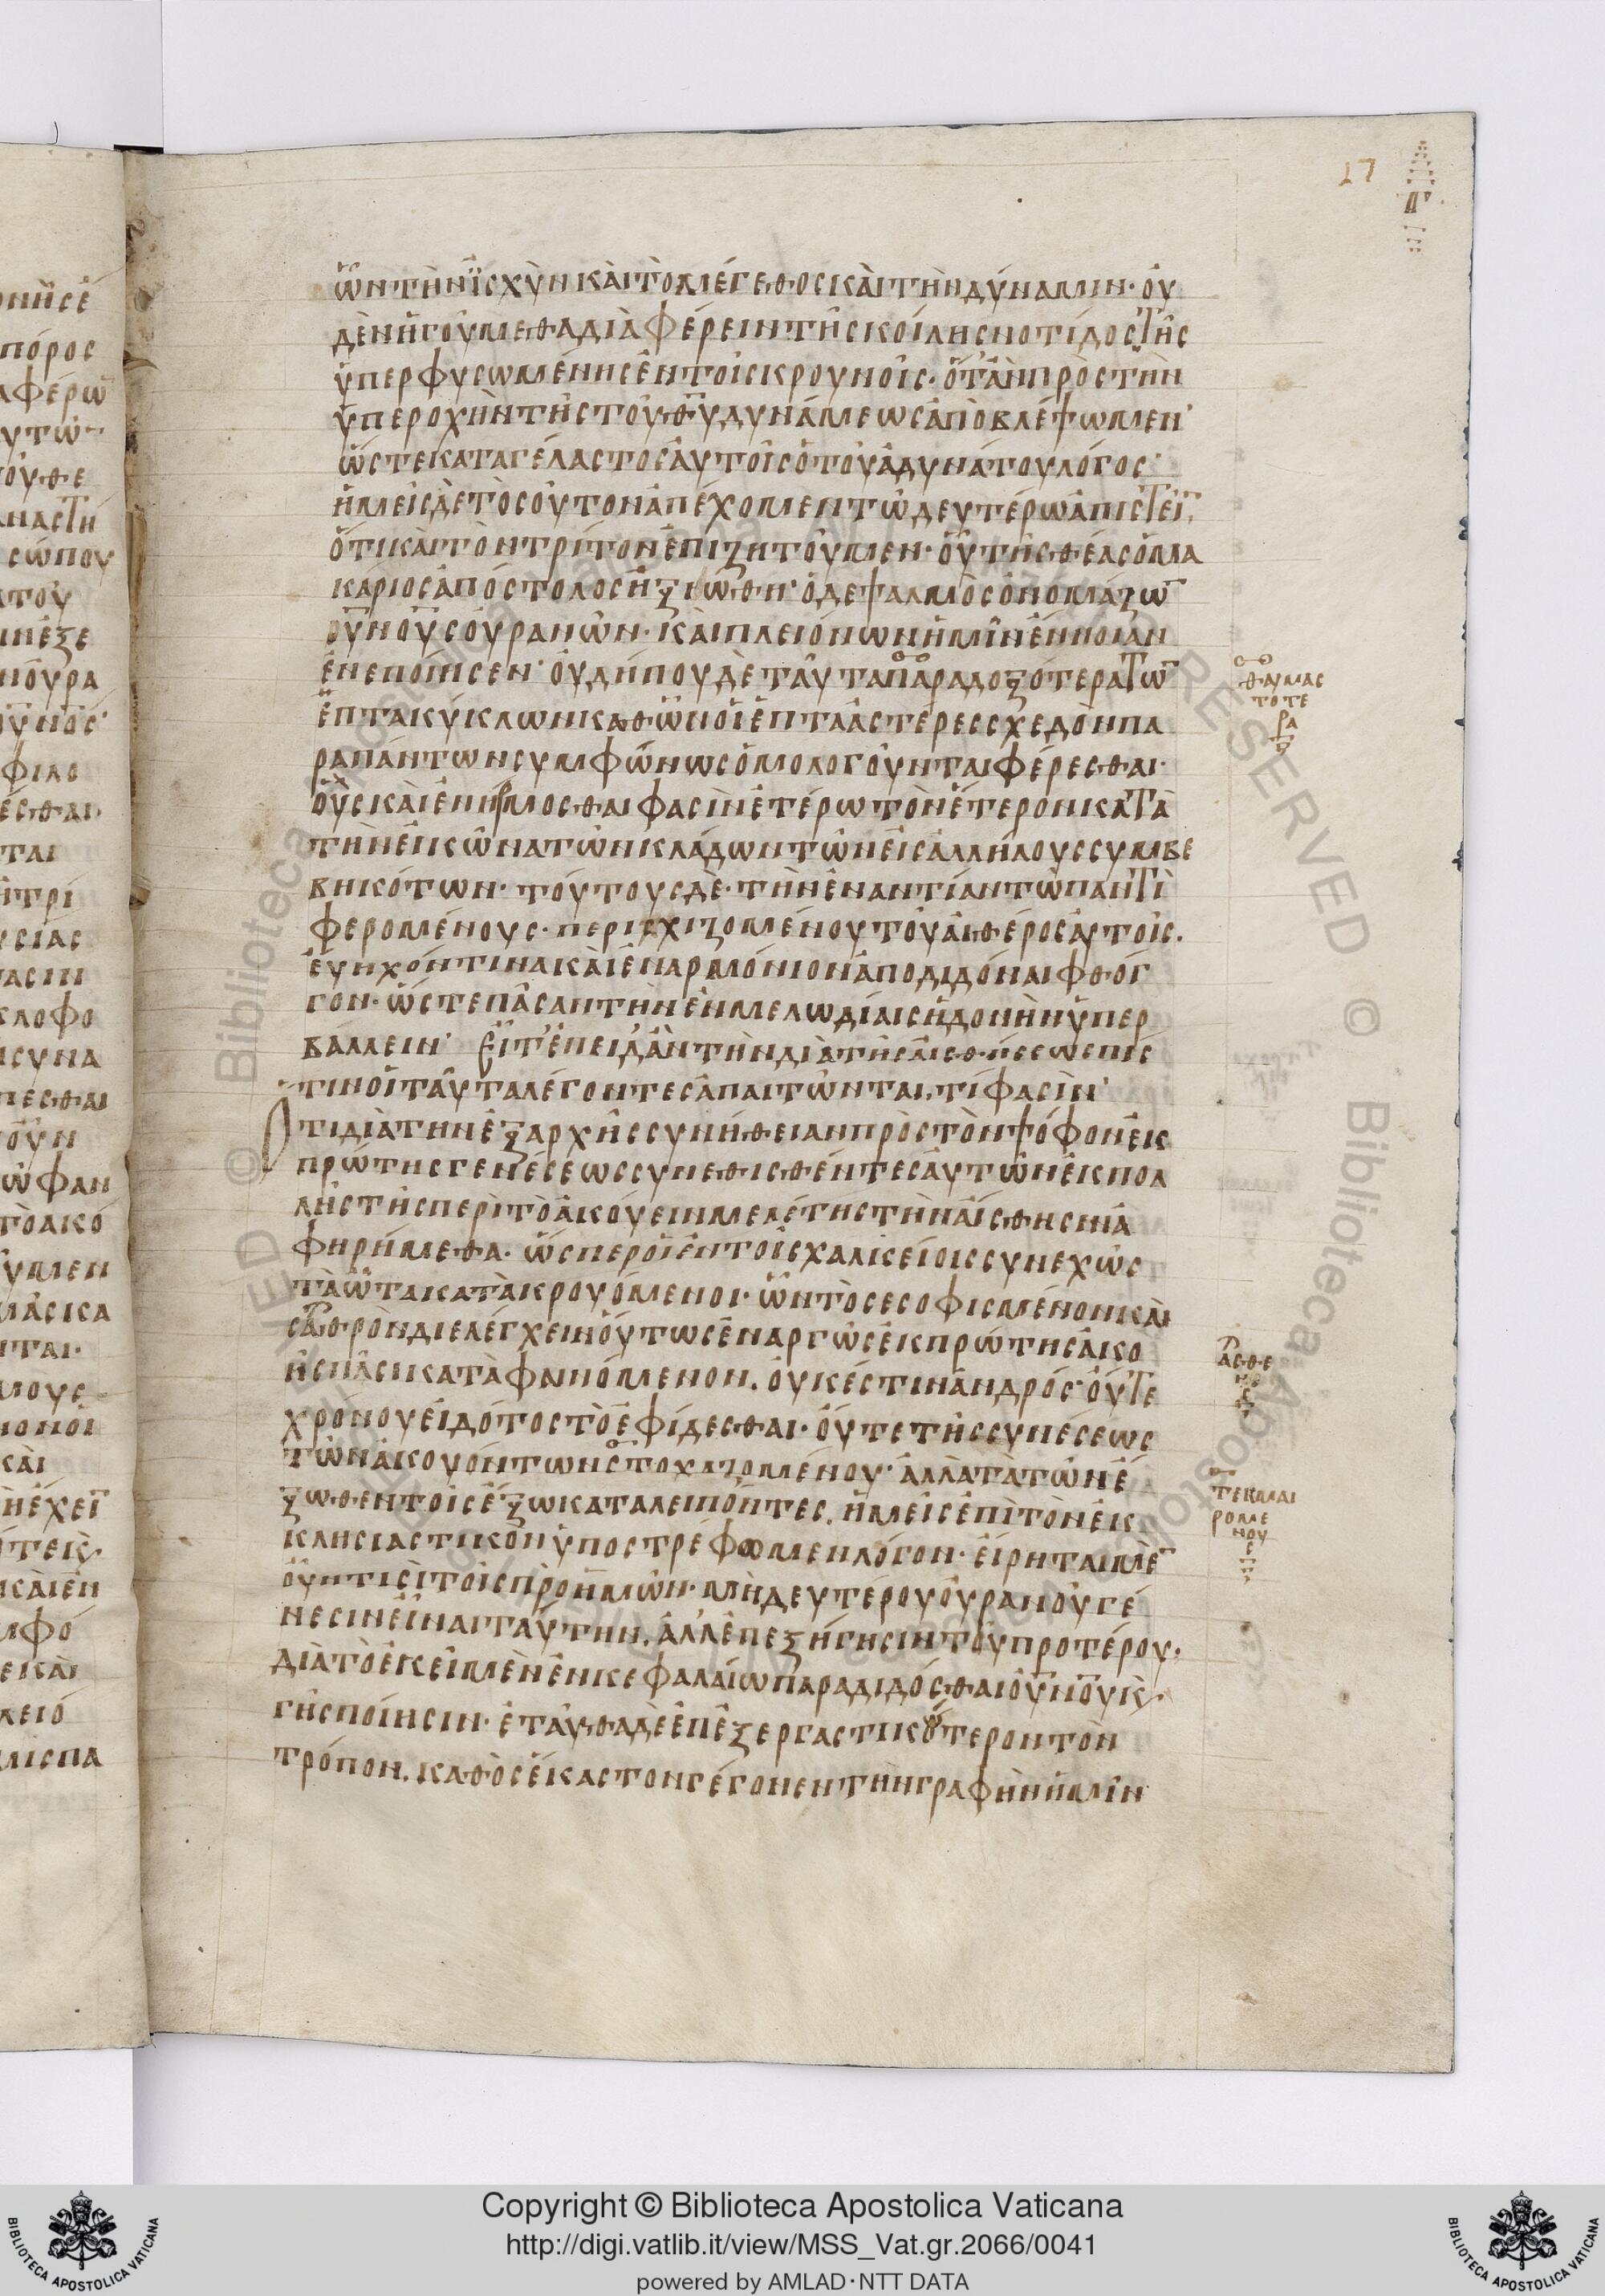 17
ὧν τὴν ἰσχὺν καὶ τὸ μέγεθος καὶ τὴν δύναμιν· οὐ
δὲν ἡγούμεθα διαφέρειν τῆς κοίλης νοτίδος τῆς
ὑπερφυσωμένης ἐν τοῖς κρουνοῖς· ὅτ' ἂν πρὸς τὴν
ὑπεροχὴν τῆς τοῦ θῡ δυνάμεως ἀποβλέψωμεν·
ὥστε καταγέλαστος αὐτοῖς ὁ τοῦ ἀδυνάτου λόγος·
ἡμεῖς δὲ τοσοῦτον ἀπέχομεν τῶ δευτέρω ἀπιστεῖ̄,
ὅτι καὶ τὸν τρίτον ἐπιζητοῦμεν· οὗ τῆς θέας ὁ μα
κάριος ἀπόστολος ἠξιώθη· ὁ δε ψαλμὸς ὀνομάζω̄
οῡνοῡς οὐρανῶν· καὶ πλειόνων ἡμῖν ἔννοιαν
ἐνεποίησεν· οὐ δήπου δὲ ταῦτα παραδοξότερα τῶ̄
ἑπτα κύκλων καθ ὧν οἱ ἑπτὰ ἀστέρες σχεδὸν πα
ρα πάντων συμφώνως ὁμολογοῦνται φέρεσθαι·
οὓς καὶ ἐνηρμοσθαι φασὶν ἑτέρω τὸν ἕτερον κατὰ
τὴν εἰκῶνα τῶν κλάδων τῶν εἰς ἀλλήλους συμβε
βηκότων· τούτους δὲ· τὴν ἐναντίαν τῶ παντὶ
φερομένους· περισχιζομένου τοῦ αἰθέρος αὐτοῖς.
εὔηχόν τινα καὶ ἐναρμόνιον ἀποδιδόναι φθόγ
γον· ὥστε πᾶσαν τὴν ἐν μελωδίαις ἡδονὴν ὑπερ
βάλλειν· Εἶτ' ἐπειδὰν τὴν διὰ τῆς αἰσθήσεως πίς
τιν οἱ ταῦτα λέγοντες ἀπαιτῶνται, τί φασὶν·
Ὅτι διὰ την ἐξ αρχῆς συνήθειαν πρὸς τὸν ψόφον ἐκ
πρώτης γενέσεως συνεθισθέντες αὐτῶν ἐκ πολ
λῆς τῆς περὶ τὸ ἀκούειν μελέτης τὴν αἴσθησιν ἀ
φηρήμεθα. ὥσπερ οἱ ἐν τοῖς χαλκείοις συνεχῶς
τὰ ὦτα κατὰ κρουόμενοι· ὧν τὸ σεσοφισμένον καὶ
σαθρὸν διελέγχειν οὕτως ἐναργῶς ἐκ πρώτης ἀκο
ῆς πᾶσι καταφαινόμενον. οὐκ έστιν ἀνδρός· οὔτε
χρόνου εἰδότος τὸ ἐφίδεσθαι· οὔτε τῆς συνέσεως
τῶν ἀκουόντων στοχαζομένου· ἀλλὰ τὰ τῶν ἔ
ξωθεν τοῖς ἔξω καταλειπόντες, ἡμεῖς ἐπὶ τὸν ἐκ
κλησιαστικὸν ὑποστρέφωμεν λόγον· εἴρηται μὲ̄
οὖν τισὶ τοῖς πρὸ ἡμῶν· μὴ δευτέρου οὐρανοῦ γέ
νεσιν εἶναι ταύτην. ἀλλ' ἐπεξήγησιν τοῦ προτέρου·
διὰ τὸ ἐκεῖ μὲν ἐν κεφαλαίω παραδιδόσθαι οῡνοῡ κ(αὶ)
γῆς ποίησιν· ἐταῦθα δὲ ἐπέξεργαστικώτερον τὸν
τρόπον, καθ ὃς ἕκαστον γέγονεν τὴν γραφὴν ἡμῖν
θαυμας
τοτε
ρα
ασθε
νες
τεκμαι
ρομε
νου
Copyright © Biblioteca Apostolica Vaticana
http://digi.vatlib.it/view/MSS_Vat.gr.2066/0041
powered by AMLAD·NTT DATA